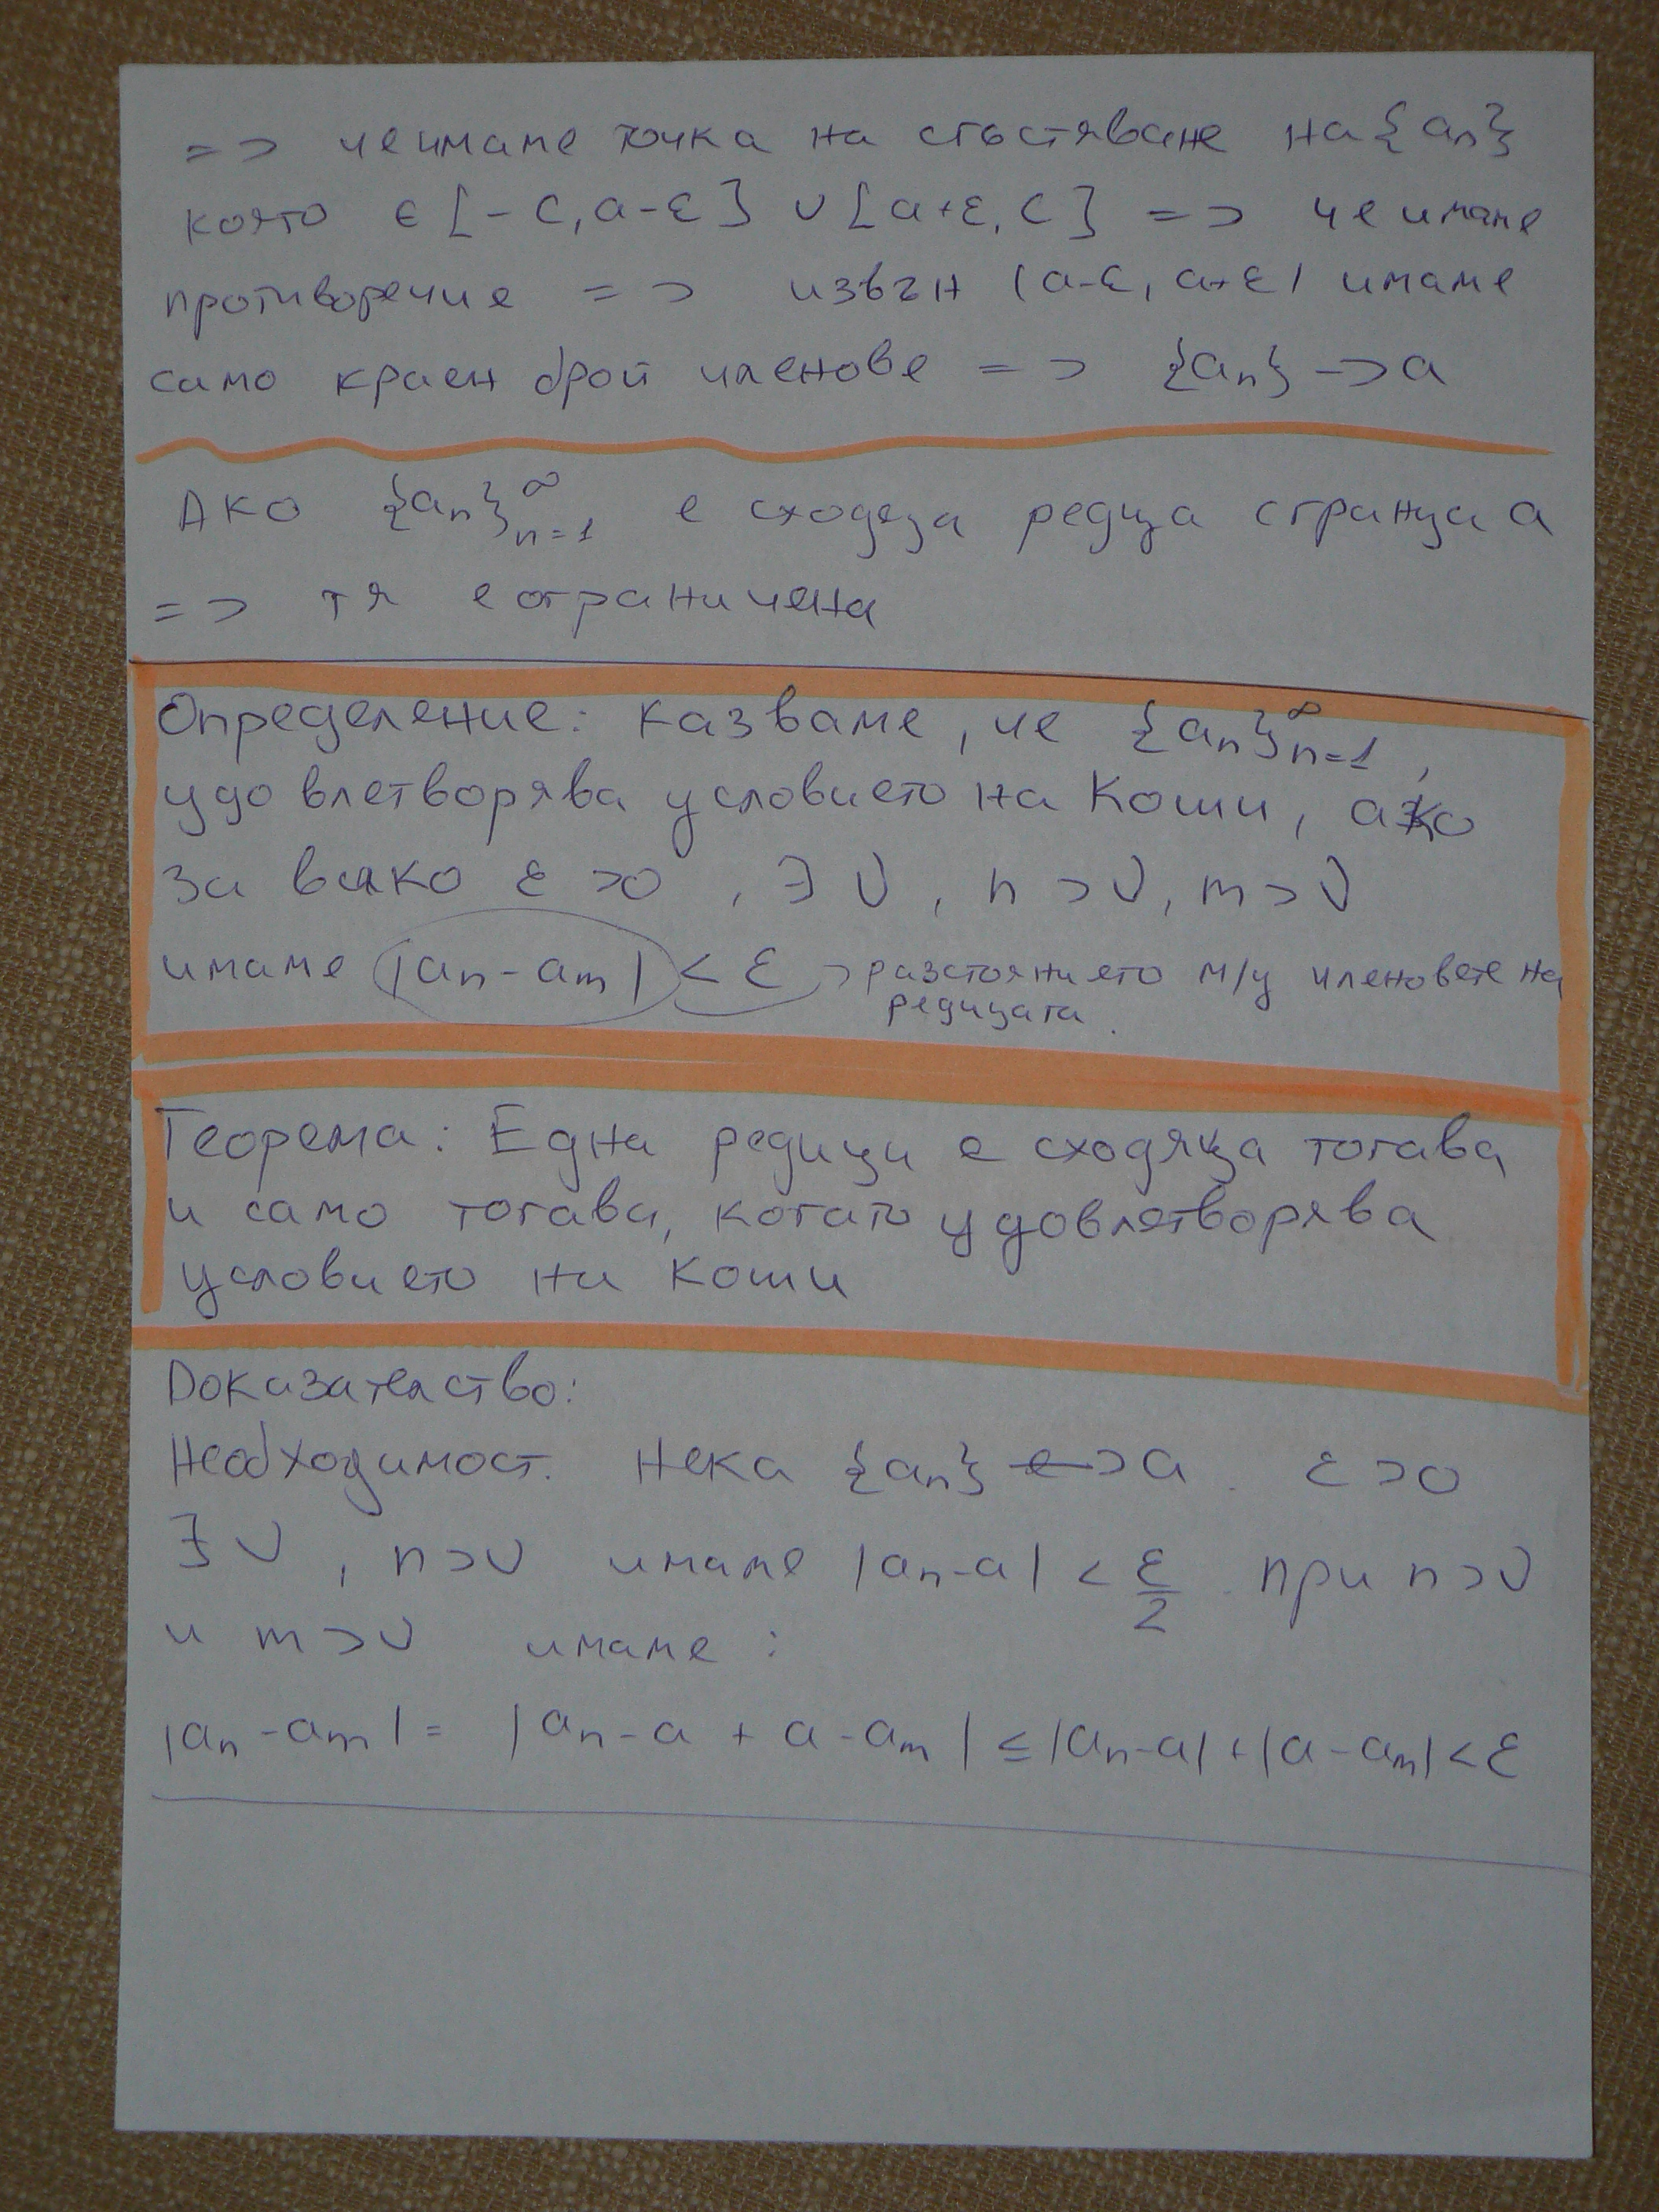 => че имаме точка на сгъстяване на {aₙ}
която ∈ [-c, a-ε] ∪ [a+ε, c] => че имаме
противоречие => извън (a-ε, a+ε) имаме
само краен брой членове => {aₙ} -> a
Ако {aₙ}ₙ₌₁^∞ е сходяща редица с граница a
=> тя е ограничена
Определение: Казваме, че {aₙ}ₙ₌₁^∞,
удовлетворява условието на Коши, ако
за всяко ε > 0, ∃ ν, n > ν, m > ν
имаме |aₙ - aₘ| < ε -> разстоянието м/у членовете на
редицата.
Теорема: Една редица е сходяща тогава
и само тогава, когато удовлетворява
условието на Коши
Доказателство:
Необходимост. Нека {aₙ} -> a. ε > 0
∃ ν, n > ν имаме |aₙ - a| < ε/2. при n > ν
и m > ν имаме:
|aₙ - aₘ| = |aₙ - a + a - aₘ| ≤ |aₙ - a| + |a - aₘ| < ε